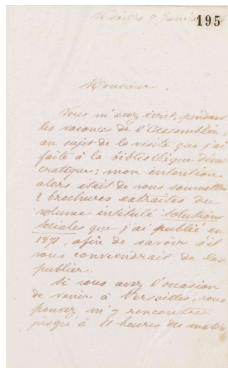 195
Monsieur
Vous m'avez écrit, pendant
les vacances de l'Assemblée,
au sujet de la visite que j'ai
faite à la bibliothèque démo
cratique; mon intention
alors était de vous soumettre
2 brochures extraites du
volume intitulé Solutions
Sociales que j'ai publié en
1871, afin de savoir s'il
vous conviendrait de les
publier.
Si vous avez l'occasion
de venir à Versailles, vous
pouvez m'y rencontrer
jusqu'à 11 heures du matin